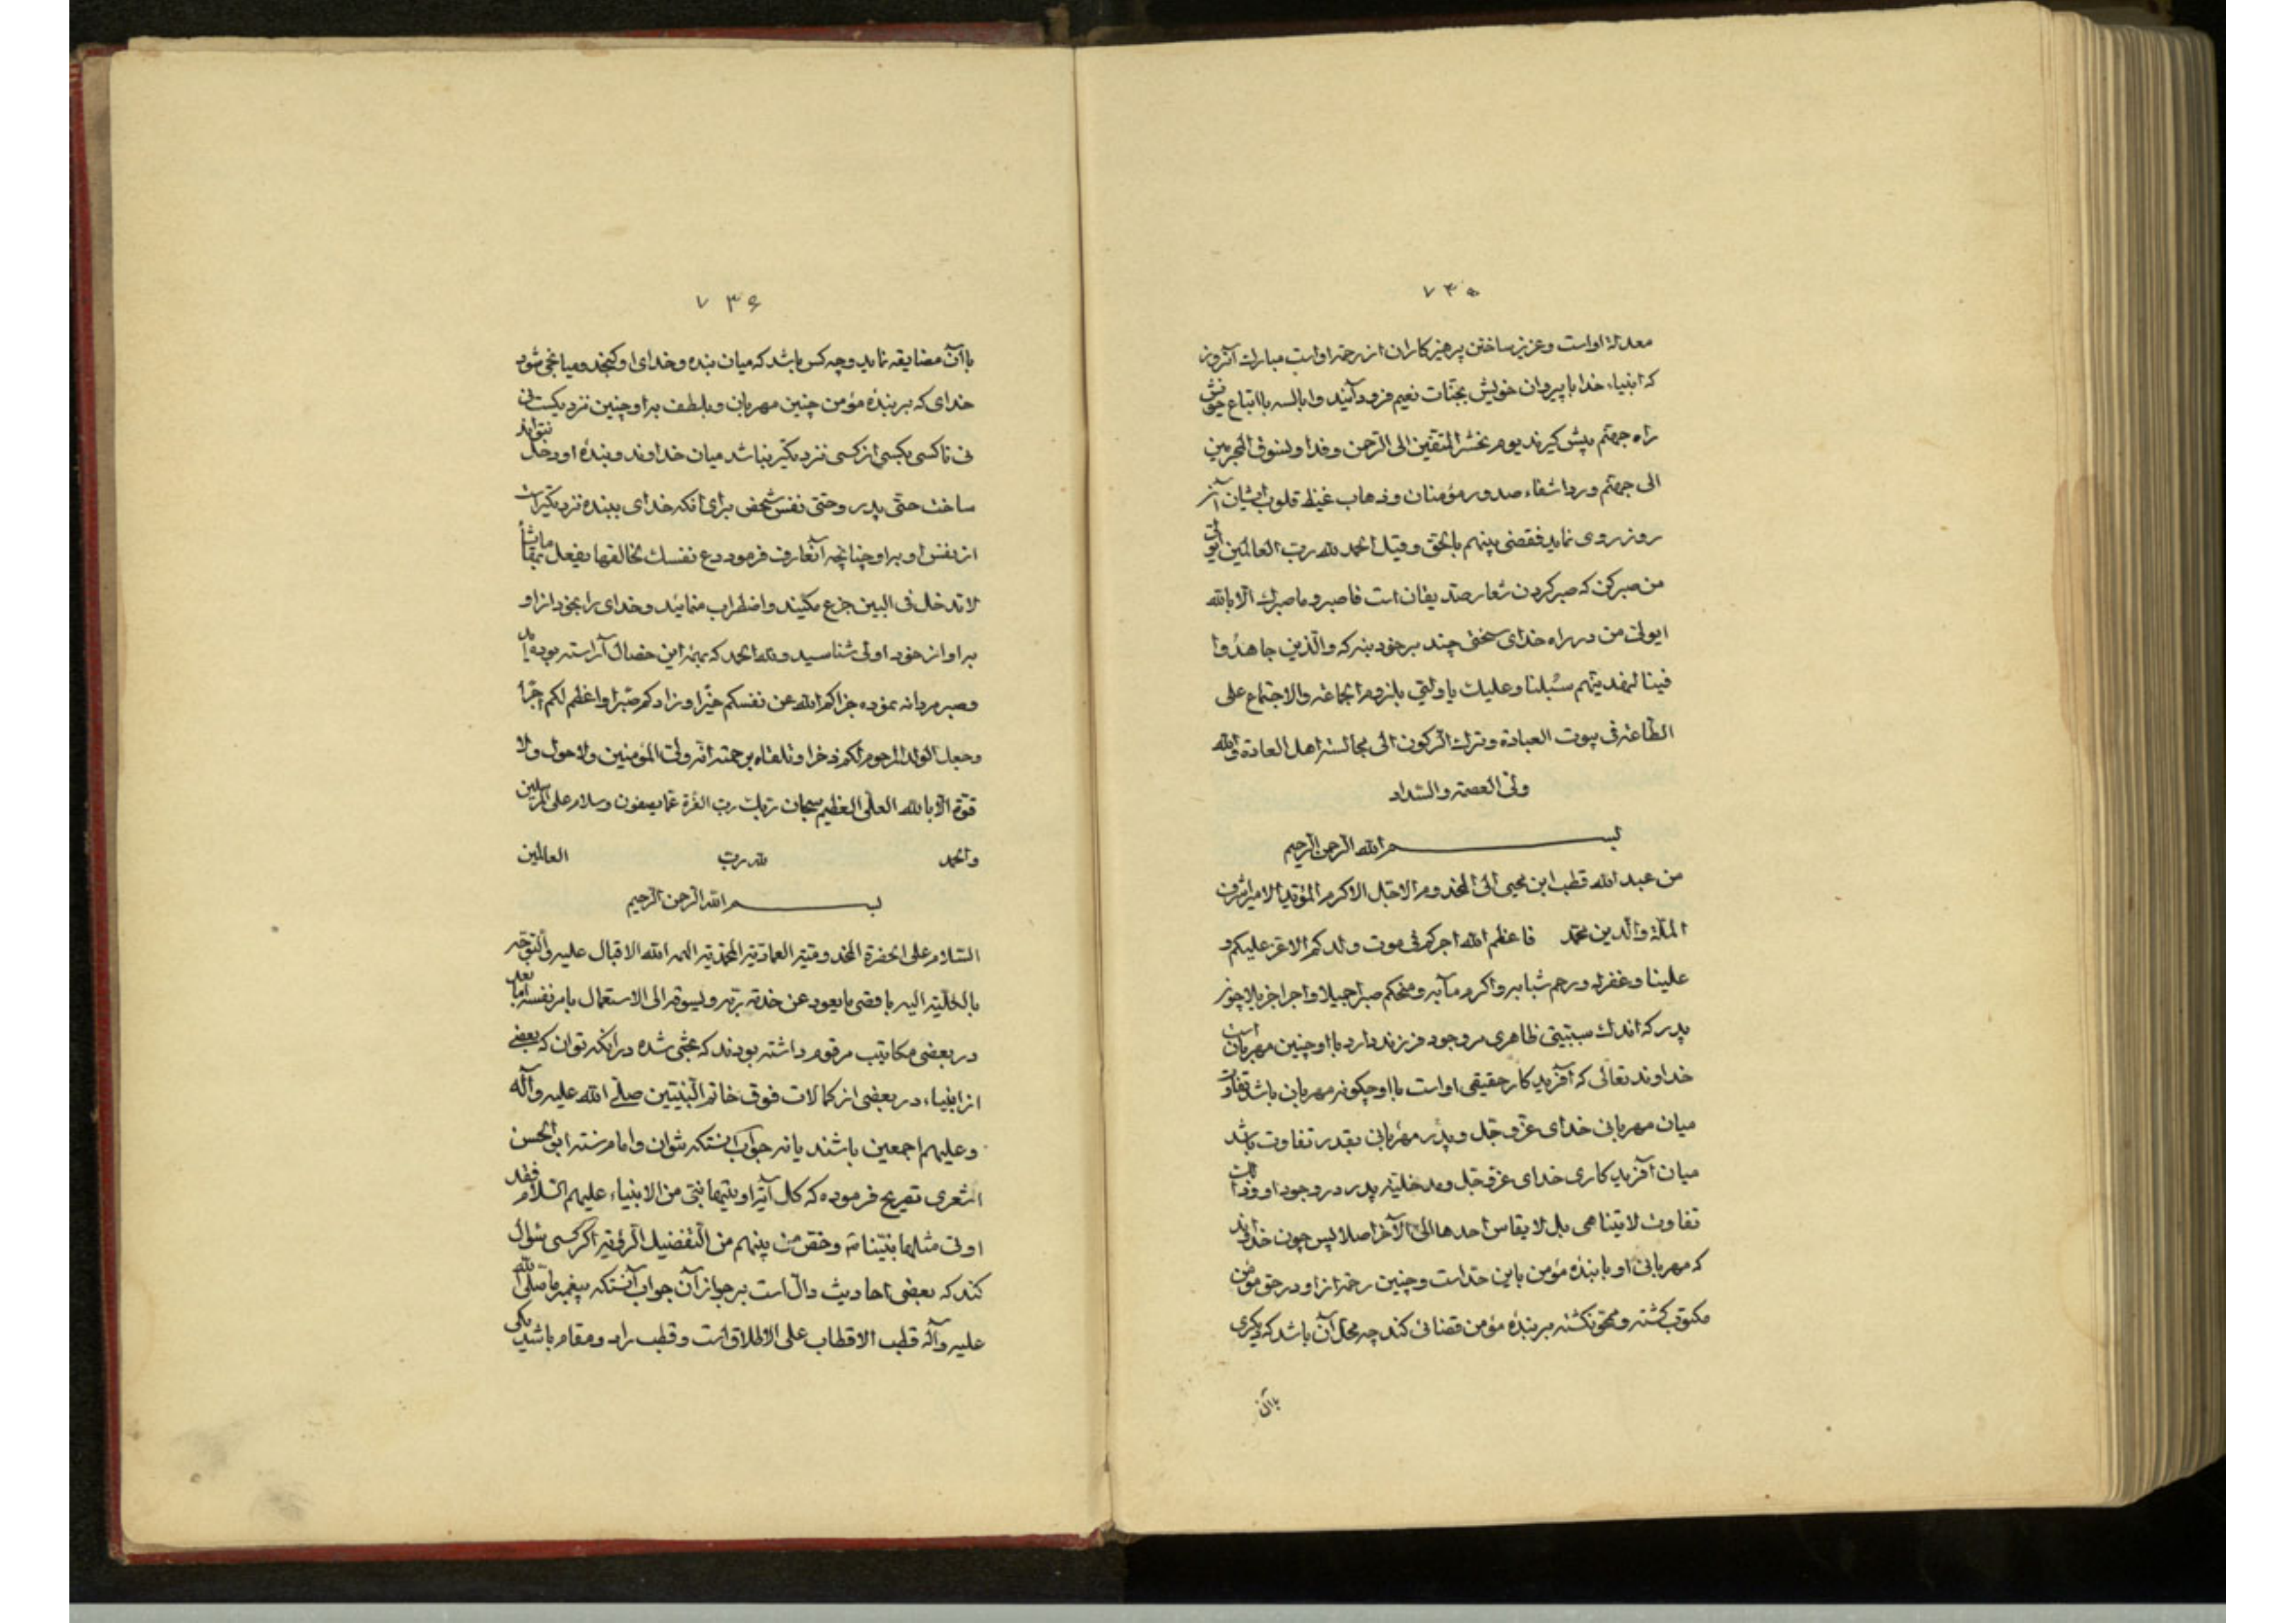 ۷۳۵
معدلة اواست وعزیز ساختن پرهیزکاران از رحمة اواست مبارك آنروز
که انبیاء خدا با پیروان خویش بجنّات نعیم فرود آیند وابالسه با اتباع خویش
راه جهنّم پیش گیرند یوم نحشر المتّقین الی الرّحمن وفدا ونسوق المجرمین
الی جهنّم وردا شفاء صدور مؤمنان وذهاب غیظ قلوب ایشان آنز
روز روی نماید فقضی بینهم بالحق وقیل الحمد لله ربّ العالمین ایولی
من صبر کن که صبر کردن شعار صدیقان است فاصبر وما صبرك الّا بالله
ایولی من در راه خدای سختی چند بر خود بنه که والّذین جاهدُوا
فینا لنهدینّهم سُبلنا وعلیك یا ولیّی بلزوم الجاعة والاجتماع علی
الطّاعة فی بیوت العبادة وترك الرّکون الی مجالسة اهل العادة والله
ولیّ العصمة والسّداد
بسم الله الرّحمن الرّحیم
من عبد الله قطب ابن محیی الی المخدوم الاجّل الاکرم المؤیّد الامیر اشرف
الملّة والدین محمّد فاعظم الله اجرکم فی موت ولدکم الاعز علیکم و
علینا وغفر له ورحم شبابه واکرم مآبه ومنحکم صبرا جمیلا واجرا جزیلا چون
پدر که اندك سببیتی ظاهری در وجود فرزند دارد با او چنین مهربان است
خداوند تعالی که آفریدکار حقیقی اواست با او چکونه مهربان باشد تفاوت
میان مهربانی خدای عزّ وجّل وپدر مهربانی بقدر تفاوت باشد
میان آفریدکاری خدای عزّ وجّل ومدخلیّة پدر در وجود او وذلك
تفاوت لایتناهی بل لا یقاس احدها الی الآخر اصلا پس چون خداوند
که مهربانی او با بندهٔ مؤمن باین حد است وچنین رحمة از او در حق مؤمن
مکتوب کشته ومحقّق کشته بر بندهٔ مؤمن قضائی کند چه محلّ آن باشد که دیکری
باآن
۷۳۶
باآن مضایقه نماید وچه کس باشد که میان بنده وخدای او کنجد ومیانجی شود
خدای که بر بندهٔ مؤمن چنین مهربان وبلطف براو چنین نزدیکست نی
نی تا کسی بکسی از کسی نزدیکتر نباشد میان خداوند وبندهٔ او دخل نتواند
ساخت حتّی پدر وحتّی نفس شخص برای انکه خدای ببنده نزدیکتر است
از نفس او براو چنانچه آنعارف فرمود دع نفسك خالقها یفعل بها ما یشاء
لا تدخل فی البین جزع مکنید واضطراب منمائید وخدای را بخود از او
براو از خود اولی شناسید ولله الحمد که بهمه این خصال آراسته بوده اید
وصبر مردانه نموده جزاکم الله عن نفسکم خیرًا وزادکم صبرًا واعظم لکم اجرًا
وجعل الولد المرحوم لکم ذخرا وتلقاه برحمته انّه ولیّ المؤمنین ولا حول ولا
قوّة الّا بالله العلّی العظیم سبحان ربّك ربّ العزّة عمّا یصفون وسلام علی المرسلین
والحمد لله ربّ العالمین
بسم الله الرّحمن الرّحیم
السّلام علی الحضرة المخدومیّة العمادیّة المحمّدیّة الهمه الله الاقبال علیه والتوجّه
بالکلّیة الیه باقصی ما یعود عن خدمة ربّه ویسوقه الی الاستعمال بامر نفسه امّا بعد
در بعضی مکاتیب مرقوم داشته بودند که بحثی شده در آنکه توان که بعضی
از انبیاء در بعضی از کمالات فوق خاتم النّبیّین صلّی الله علیه وآله
وعلیهم اجمعین باشند یا نه جواب آنستکه نتوان وامام سنّة ابو الحسن
اشعری تصریح فرموده که کل آیة اوتیها نبیّ من الانبیاء علیهم السّلام فقد
اوتی مثلها نبیّنا وخصّ من بینهم من التفضیل الرؤیة اکر کسی سئوال
کند که بعضی احادیث دالّ است بر جواز آن جواب آنستکه پیغمبر ما صلّی الله
علیه وآله قطب الاقطاب علی الاطلاق است وقطب را دو مقام باشد یکی